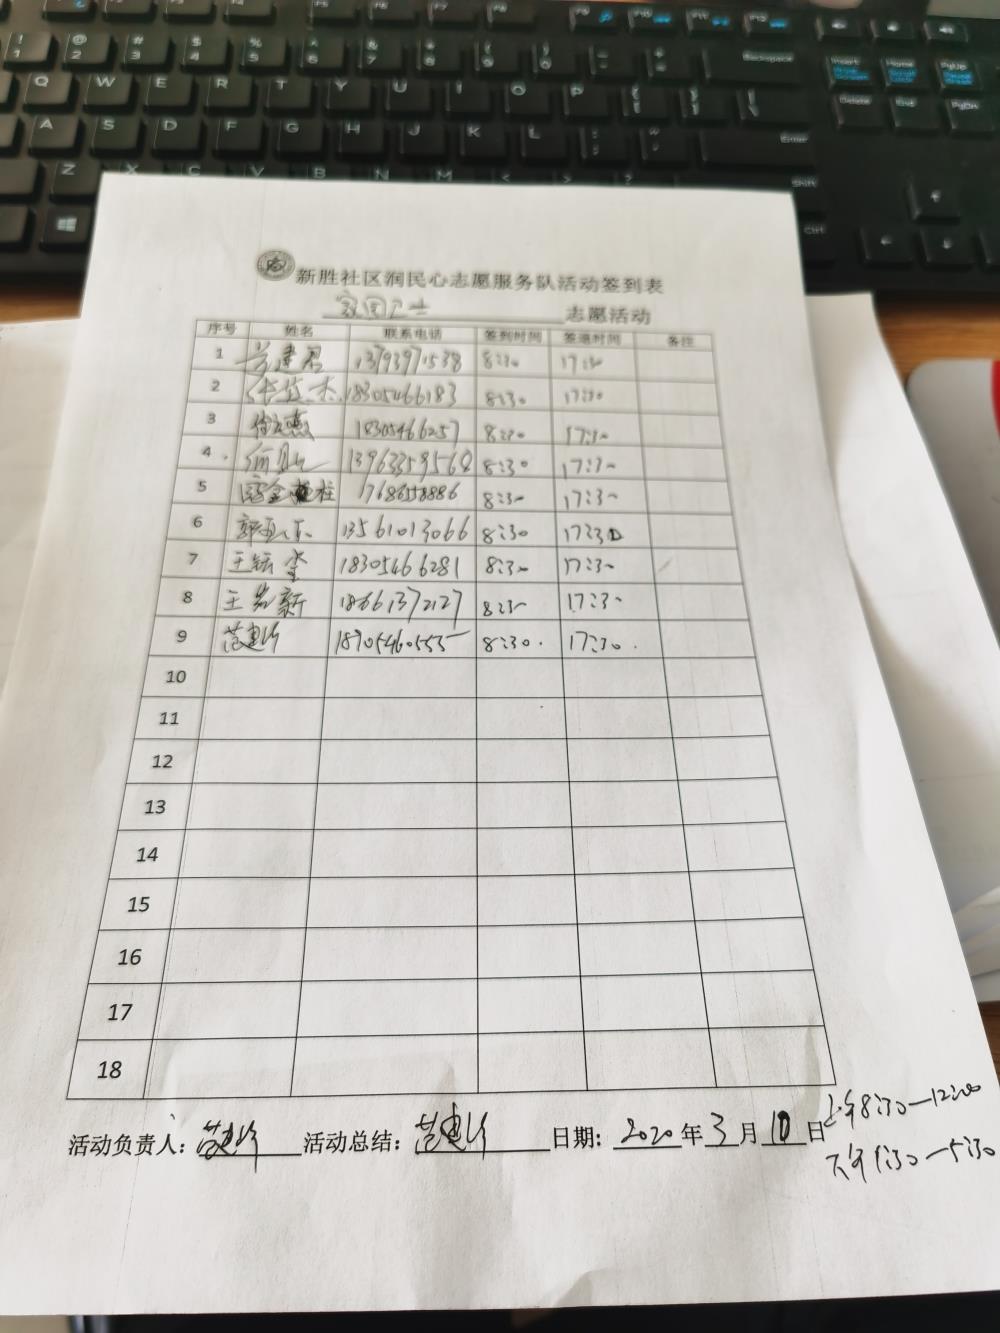 新胜社区润民心志愿服务队活动签到表
家园卫士 志愿活动
序号 姓名 联系电话 签到时间 签退时间 备注
1 建君 13793971538 8:30 17:30
2 18305466183 8:30 17:30
3 18305466257 8:30 17:30
4 13963359568 8:30 17:30
5 17686558886 8:30 17:30
6 13561013066 8:30 17:30
7 王 18305466281 8:30 17:30
8 王 新 18661372127 8:30 17:30
9 范建 18705460555 8:30 17:30
10
11
12
13
14
15
16
17
18
活动负责人: 范建 活动总结: 范建 日期: 2020年3月10日
上午8:30—12:00
下午1:30—5:30